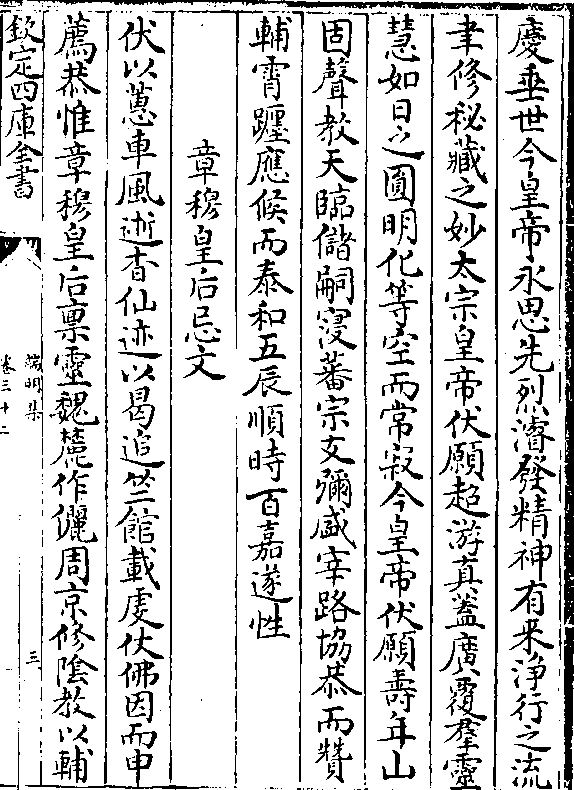 慶垂世今皇帝永思先烈濬發精神有來淨行之流
聿修秘藏之妙太宗皇帝伏願超游真蓋廣覆羣靈
慧如日之圓明化等空而常寂今皇帝伏願壽年山
固聲教天臨儲嗣寖蕃宗支彌盛宰路協恭而贊
輔霄躔應候而泰和五辰順時百嘉遂性
章穆皇后忌文
伏以蕙車風逝杳仙迹以曷追竺館載虔仗佛因而申
薦恭惟章穆皇后禀靈魏麓作儷周京修陰教以輔
欽定四庫全書
端明集
卷三十二
三